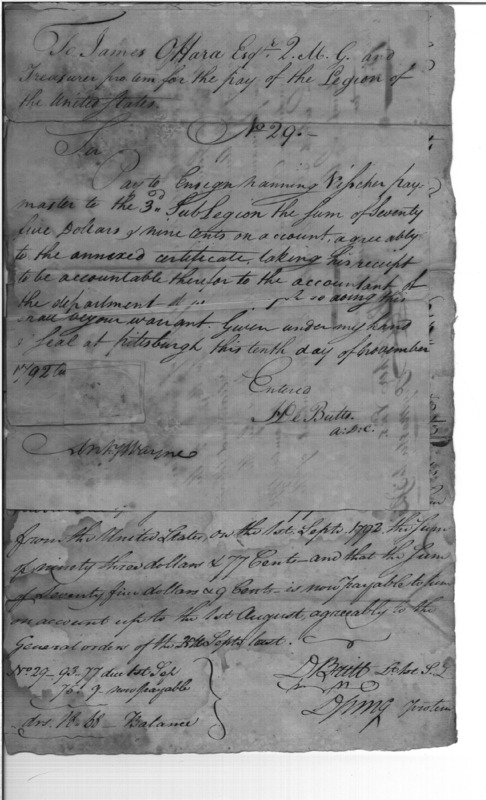 To James OHara Esqr. Q. M. G. and
Treasurer pro tem for the pay of the Legion of
the United States.
No. 29.
Sir
Pay to Ensign Nanning Visscher pay
master to the 3d. Sub Legion the sum of Seventy
five Dollars & nine cents on account, agreably
to the annexed certificate, taking his receipt
to be accountable therefor to the accountant of
the department of so doing this
shall be your warrant Given under my hand
& Seal at Pittsburgh this tenth day of November
1792
Entered
H De Butts
a.D.C.
Anty. Wayne
from the United States, on the 1st. Septr. 1792. the sum
of ninety three dollars & 77 Cents and that the sum
of Seventy five dollars & 9 Cents is now payable to him
on account up to the 1st August, agreeably to the
General orders of the Septr. last.
No 29 93.77 due 1st Sep
75.9 now payable
drs. 18.68 Balance
D Britt Lt 1st S. L
D pmg protem